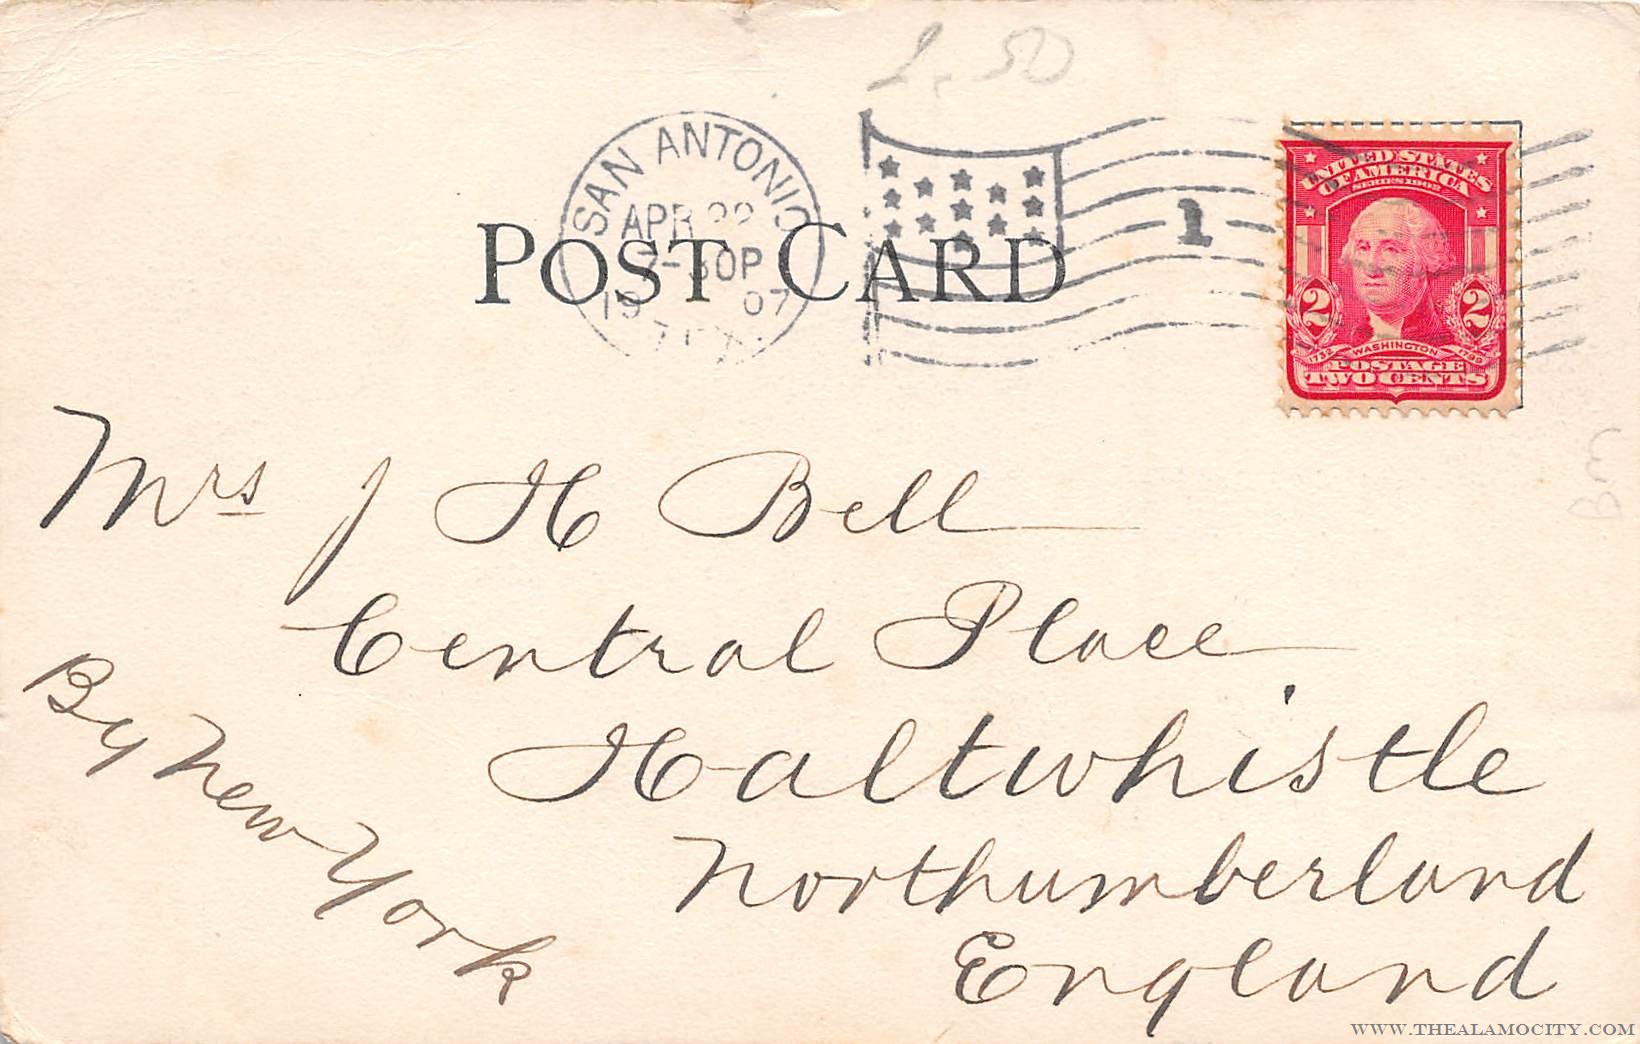 2.50
SAN ANTONIO
APR 22
7-30P
1907
TEX.
1
POST CARD
UNITED STATES
OF AMERICA
SERIES 1902
2 2
1732 WASHINGTON 1799
POSTAGE
TWO CENTS
Bm
Mrs J H Bell
Central Place
Haltwhistle
Northumberland
England
By New York
WWW.THEALAMOCITY.COM